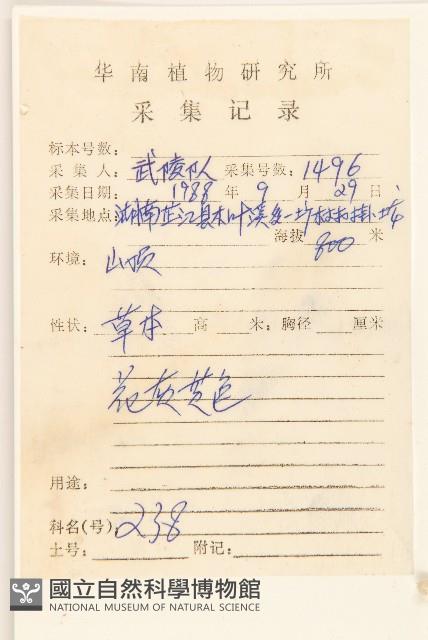 华南植物研究所
采集记录
标本号数:
采集人: 武陵队 采集号数: 1496
采集日期: 1988 年 9 月 29 日
采集地点: 湖南芷江县木叶溪乡
海拔 800 米
环境: 山顶
性状: 草本 高 米; 胸径 厘米
花灰黄色
用途:
科名(号) 238
土号: 附记:
國立自然科學博物館
NATIONAL MUSEUM OF NATURAL SCIENCE